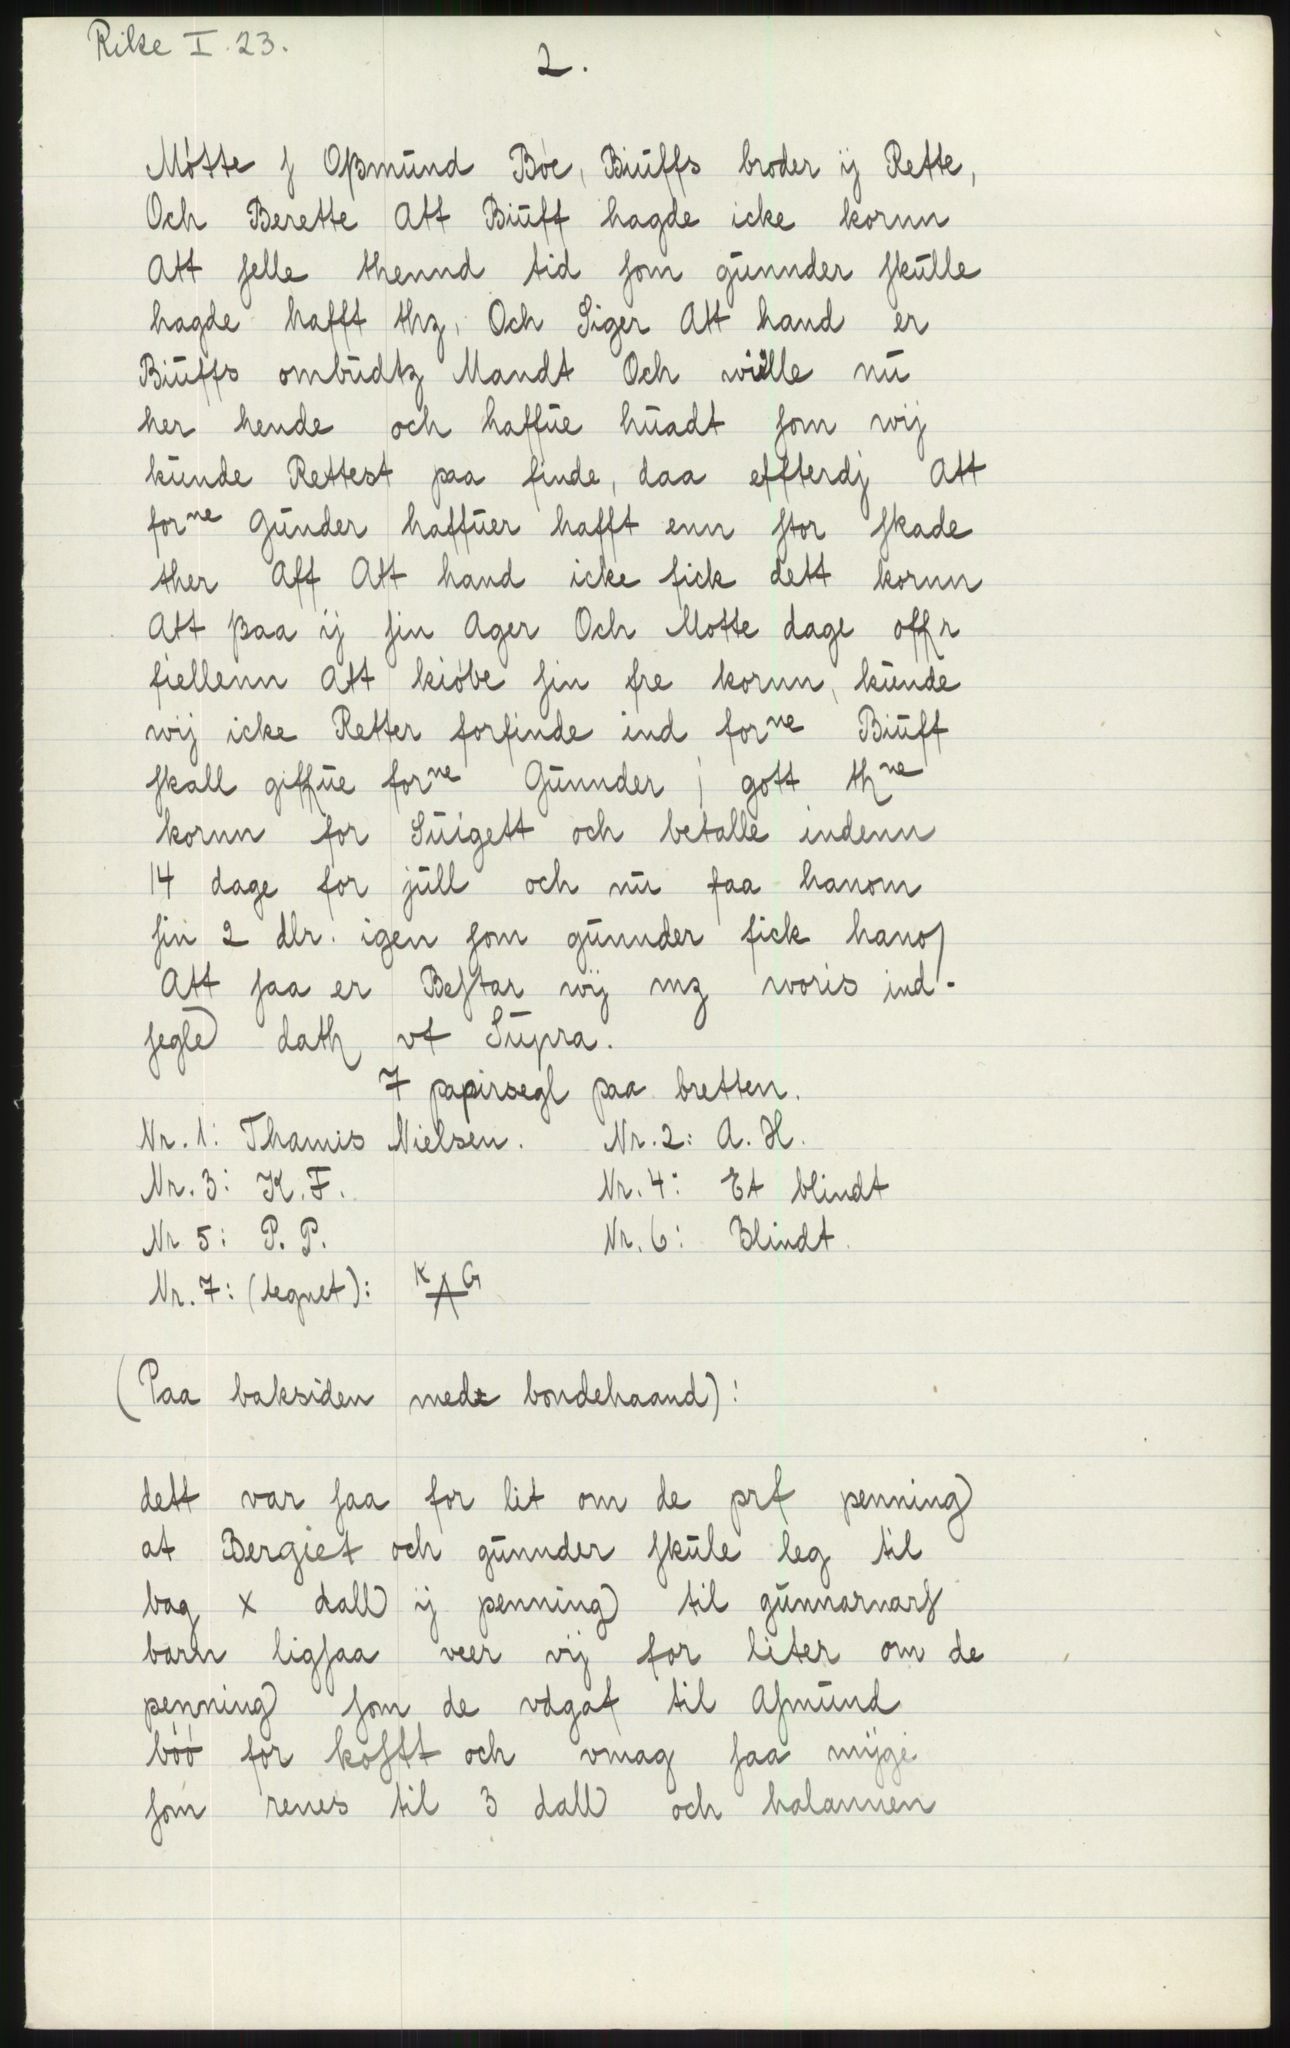 Rike I. 23.
2.
Møtte ɟ Oßmund Bøe, Biuffs broder ij Rette,
Och Berette Att Biuff hagde icke kornn
Att selle thennd tid som gunnder skulle
hagde hafft thz, Och Siger Att hand er
Biuffs ombudtz Mandt Och wille nu
her hende och haffue huadt som wij
kunde Rettest paa finde, daa effterdj Att
forne Gunder haffuer hafft enn stor skade
ther Aff Att hand icke fick dett kornn
Att ßaa ij sin Ager Och Motte dage offr
fiellenn Att kiøbe sin fre kornn, kunde
wij icke Retter forfinde ind forne Biuff
skall giffue forne Gunnder j gott thne
kornn for Suigett och betalle indenn
14 dage for jull och nu faa hanom
sin 2 dlr. igen som gunnder fick hano
Att saa er Bestar wij mz woris ind-
segle dath vt Supra.
7 papirsegl paa bretten.
Nr. 1: Thamis Nielsen. Nr. 2: A. H.
Nr. 3: K. F. Nr. 4: Et blindt
Nr 5: P. P. Nr. 6: Blindt.
Nr. 7: (tegnet): K A G
(Paa baksiden med bondehaand):
dett var saa for lit om de prf penning
at Bergiet och gunnder skule leg til
bag x dall ij penning til gunnarnars
barn ligsaa veer vij for liter om de
penning som de vdgaf til Asmund
bøø for kofft och vmag saa myge
som renes til 3 dall och halannen